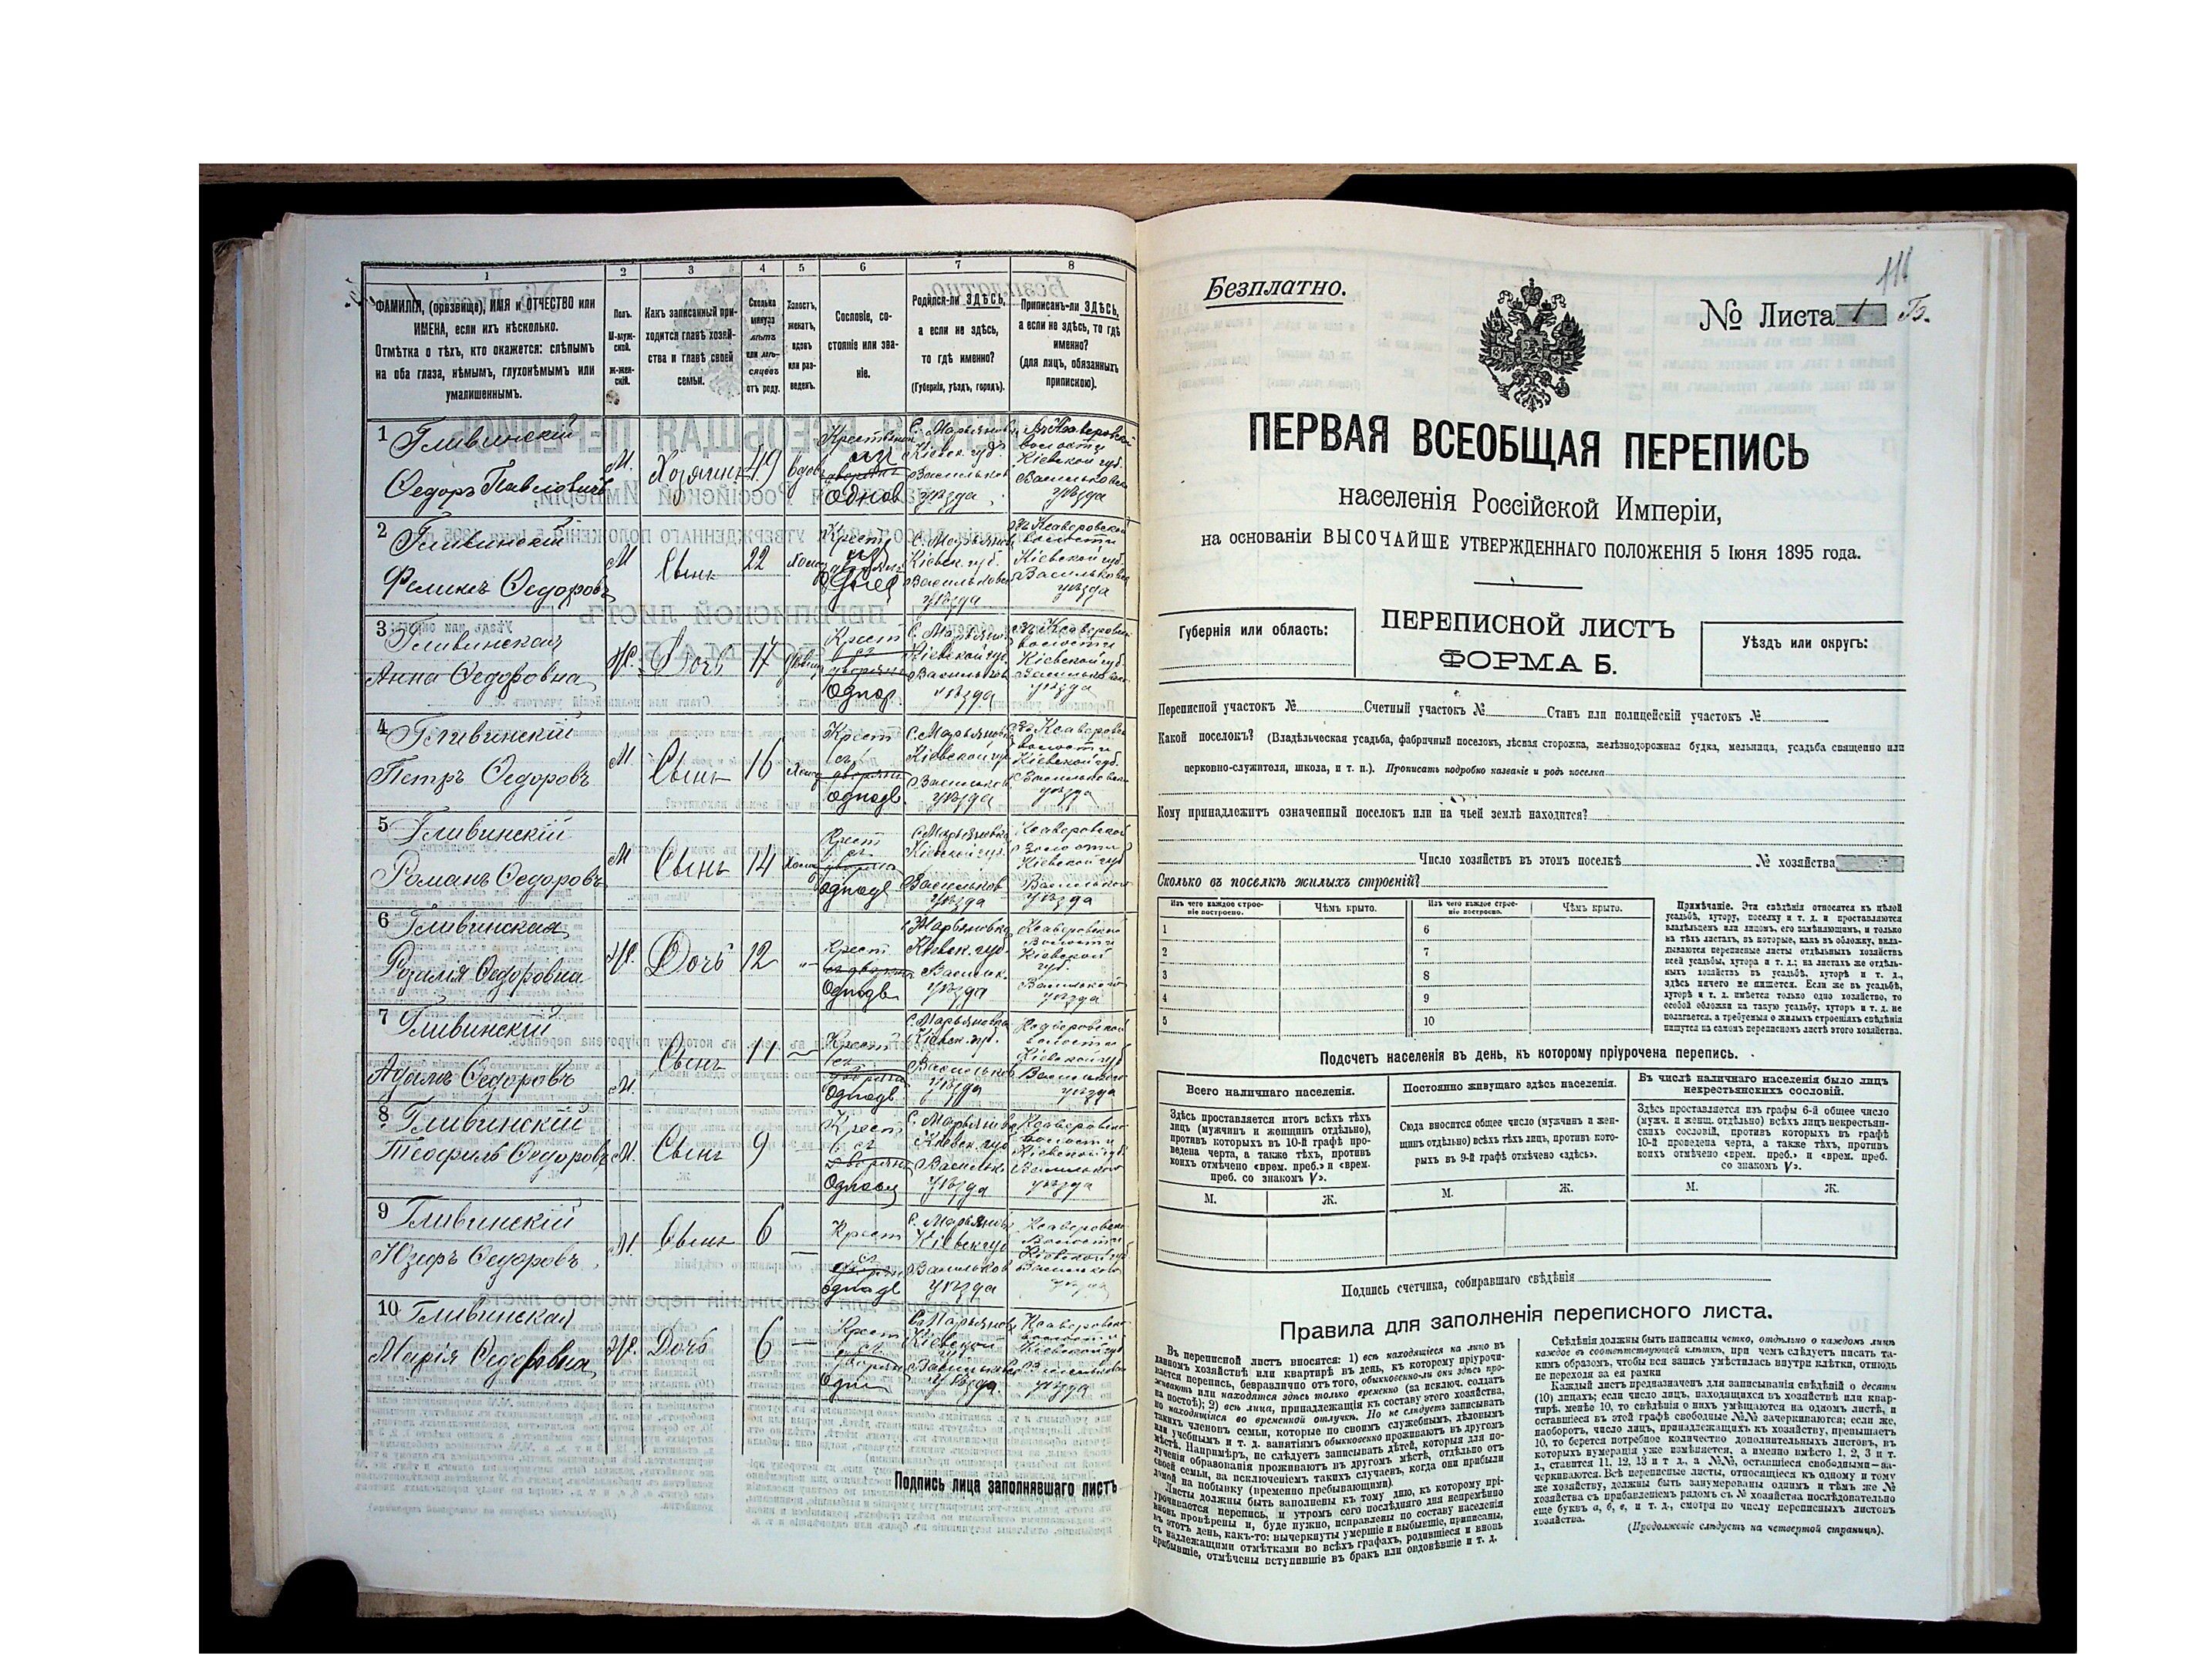 1
2
3
4
5
6
7
8
ФАМИЛІЯ, (прозвище), ИМЯ и ОТЧЕСТВО или
ИМЕНА, если ихъ нѣсколько.
Отмѣтка о тѣхъ, кто окажется: слѣпымъ
на оба глаза, нѣмымъ, глухонѣмымъ или
умалишеннымъ.
Полъ.
М-муж-
ской.
Ж-жен-
скій.
Какъ записанный при-
ходится главѣ хозяй-
ства и главѣ своей
семьи.
Сколько
минуло
лѣтъ
или мѣ-
сяцевъ
отъ роду.
Холостъ,
женатъ,
вдовъ
или раз-
веденъ.
Сословіе, со-
стояніе или зва-
ніе.
Родился-ли ЗДѢСЬ,
а если не здѣсь,
то гдѣ именно?
(Губернія, уѣздъ, городъ).
Приписанъ-ли ЗДѢСЬ,
а если не здѣсь, то гдѣ
именно?
(для лицъ, обязанныхъ
припискою).
1 Гливинскій
Федоръ Павловичъ
М. Хозяинъ 49 вдов
Однов
Кіевск. губ.
Васильков
уѣзда
волости
Кіевской губ.
уѣзда
2 Гливинскій
Феликсъ Федоровъ
М Сынъ 22 Холос
Крест
Кіевск. губ.
уѣзда
волости
Кіевской губ.
уѣзда
3 Гливинская
Анна Федоровна
Ж. Дочь 17
Крест
съ
Однод.
Кіевской губ.
Васильков
уѣзда
волости
Кіевской губ.
уѣзда
4 Гливинскій
Петръ Федоровъ
М. Сынъ 16 Холос
Крест
съ
Однодв
С. Марьяновк
Кіевской губ
уѣзда
волости
Кіевской губ.
уѣзда
5 Гливинскій
Романъ Федоровъ
М Сынъ 14 Холос
Крест
съ
Однодв
С. Марьяновка
Кіевской губ.
Васильков
уѣзда
Ксаверовской
волости
Кіевской губ
уѣзда
6 Гливинская
Розалія Федоровна
Ж. Дочь 12 „—
Крест
Однодв
С. Марьяновка
Кіевск. губ.
Васильк.
уѣзда
волости
Кіевской
губ.
уѣзда
7 Гливинскій
Адамъ Федоровъ
М. Сынъ 11 —
Крест
съ
Однодв
С. Марьяновка
Кіевск. губ.
Васильков
уѣзда
волости
Кіевской губ
уѣзда
8 Гливинскій
Теофиль Федоровъ
М. Сынъ 9 —
Крест
съ
уѣзда
волости
Кіевской губ
уѣзда
9 Гливинскій
Юзефъ Федоровъ
М. Сынъ 6 —
Крест
съ
однодв
Васильков
уѣзда
волости
10 Гливинская
Марія Федоровна
Ж. Дочь 6 —
Крест
съ
Кіевской
уѣзда
уѣзда
Подпись лица заполнявшаго листъ
Безплатно.
№ Листа 1 Б.
ПЕРВАЯ ВСЕОБЩАЯ ПЕРЕПИСЬ
населенія Россійской Имперіи,
на основаніи ВЫСОЧАЙШЕ УТВЕРЖДЕННАГО ПОЛОЖЕНІЯ 5 Іюня 1895 года.
Губернія или область:
ПЕРЕПИСНОЙ ЛИСТЪ
ФОРМА Б.
Уѣздъ или округъ:
Переписной участокъ № Счетный участокъ № Станъ или полицейскій участокъ №
Какой поселокъ? (Владѣльческая усадьба, фабричный поселокъ, лѣсная сторожка, желѣзнодорожная будка, мельница, усадьба священно или
церковно-служителя, школа, и т. п.). Прописать подробно названіе и родъ поселка
Кому принадлежитъ означенный поселокъ или на чьей землѣ находится?
Число хозяйствъ въ этомъ поселкѣ № хозяйства
Сколько въ поселкѣ жилыхъ строеній?
Изъ чего каждое строе-
ніе построено.
Чѣмъ крыто.
Изъ чего каждое строе-
ніе построено.
Чѣмъ крыто.
1 6
2 7
3 8
4 9
5 10
Примѣчаніе. Эти свѣдѣнія относятся къ цѣлой
усадьбѣ, хутору, поселку и т. д. и проставляются
владѣльцемъ или лицомъ, его замѣняющимъ, и только
на тѣхъ листахъ, въ которые, какъ въ обложку, вкла-
дываются переписные листы отдѣльныхъ хозяйствъ
всей усадьбы, хутора и т. д.; на листахъ же отдѣль-
ныхъ хозяйствъ въ усадьбѣ, хуторѣ и т. д.,
здѣсь ничего не пишется. Если же въ усадьбѣ,
хуторѣ и т. д. имѣется только одно хозяйство, то
особой обложки на такую усадьбу, хуторъ и т. д. не
полагается, а требуемыя о жилыхъ строеніяхъ свѣдѣнія
пишутся на самомъ переписномъ листѣ этого хозяйства.
Подсчетъ населенія въ день, къ которому пріурочена перепись.
Всего наличнаго населенія.
Постоянно живущаго здѣсь населенія.
Въ числѣ наличнаго населенія было лицъ
некрестьянскихъ сословій.
Здѣсь проставляется итогъ всѣхъ тѣхъ
лицъ (мужчинъ и женщинъ отдѣльно),
противъ которыхъ въ 10-й графѣ про-
ведена черта, а также тѣхъ, противъ
коихъ отмѣчено «врем. преб.» и «врем.
преб. со знакомъ V».
Сюда вносится общее число (мужчинъ и жен-
щинъ отдѣльно) всѣхъ тѣхъ лицъ, противъ кото-
рыхъ въ 9-й графѣ отмѣчено «здѣсь».
Здѣсь проставляется изъ графы 6-й общее число
(мужч. и женщ. отдѣльно) всѣхъ лицъ некрестьян-
скихъ сословій, противъ которыхъ въ графѣ
10-й проведена черта, а также тѣхъ, противъ
коихъ отмѣчено «врем. преб.» и «врем. преб.
со знакомъ V».
М. Ж. М. Ж. М. Ж.
Подпись счетчика, собиравшаго свѣдѣнія
Правила для заполненія переписного листа.
Въ переписной листъ вносятся: 1) всѣ находящіеся на лицо въ
данномъ хозяйствѣ или квартирѣ въ день, къ которому пріурочи-
вается перепись, безразлично отъ того, обыкновенно-ли они здѣсь про-
живаютъ или находятся здѣсь только временно (за исключ. солдатъ
на постоѣ); 2) всѣ лица, принадлежащія къ составу этого хозяйства,
но находящіяся во временной отлучкѣ. Но не слѣдуетъ записывать
такихъ членовъ семьи, которые по своимъ служебнымъ, дѣловымъ
или учебнымъ и т. д. занятіямъ обыкновенно проживаютъ въ другомъ
мѣстѣ. Напримѣръ, не слѣдуетъ записывать дѣтей, которыя для по-
лученія образованія проживаютъ въ другомъ мѣстѣ, отдѣльно отъ
своей семьи, за исключеніемъ такихъ случаевъ, когда они прибыли
домой на побывку (временно пребывающими).
Листы должны быть заполнены къ тому дню, къ которому прі-
урочивается перепись, и утромъ сего послѣдняго дня непремѣнно
вновь провѣрены и, буде нужно, исправлены по составу населенія
въ этотъ день, какъ-то: вычеркнуты умершіе и выбывшіе, приписаны,
съ надлежащими отмѣтками во всѣхъ графахъ, родившіеся и вновь
прибывшіе, отмѣчены вступившіе въ бракъ или овдовѣвшіе и т. д.
Свѣдѣнія должны быть написаны четко, отдѣльно о каждомъ лицѣ
каждое въ соотвѣтствующей клѣткѣ, при чемъ слѣдуетъ писать та-
кимъ образомъ, чтобы вся запись умѣстилась внутри клѣтки, отнюдь
не переходя за ея рамки
Каждый листъ предназначенъ для записыванія свѣдѣній о десяти
(10) лицахъ; если число лицъ, находящихся въ хозяйствѣ или квар-
тирѣ, менѣе 10, то свѣдѣнія о нихъ умѣщаются на одномъ листѣ, и
оставшіеся въ этой графѣ свободные №№ зачеркиваются; если же,
наоборотъ, число лицъ, принадлежащихъ къ хозяйству, превышаетъ
10, то берется потребное количество дополнительныхъ листовъ, въ
которыхъ нумерація уже измѣняется, а именно вмѣсто 1, 2, 3 и т.
д., ставится 11, 12, 13 и т. д., а №№, оставшіеся свободными—за-
черкиваются. Всѣ переписные листы, относящіеся къ одному и тому
же хозяйству, должны быть занумерованы однимъ и тѣмъ же №
хозяйства съ прибавленіемъ рядомъ съ № хозяйства послѣдовательно
еще буквъ а, б, в, и т. д., смотря по числу переписныхъ листовъ
хозяйства.
(Продолженіе слѣдуетъ на четвертой страницѣ).